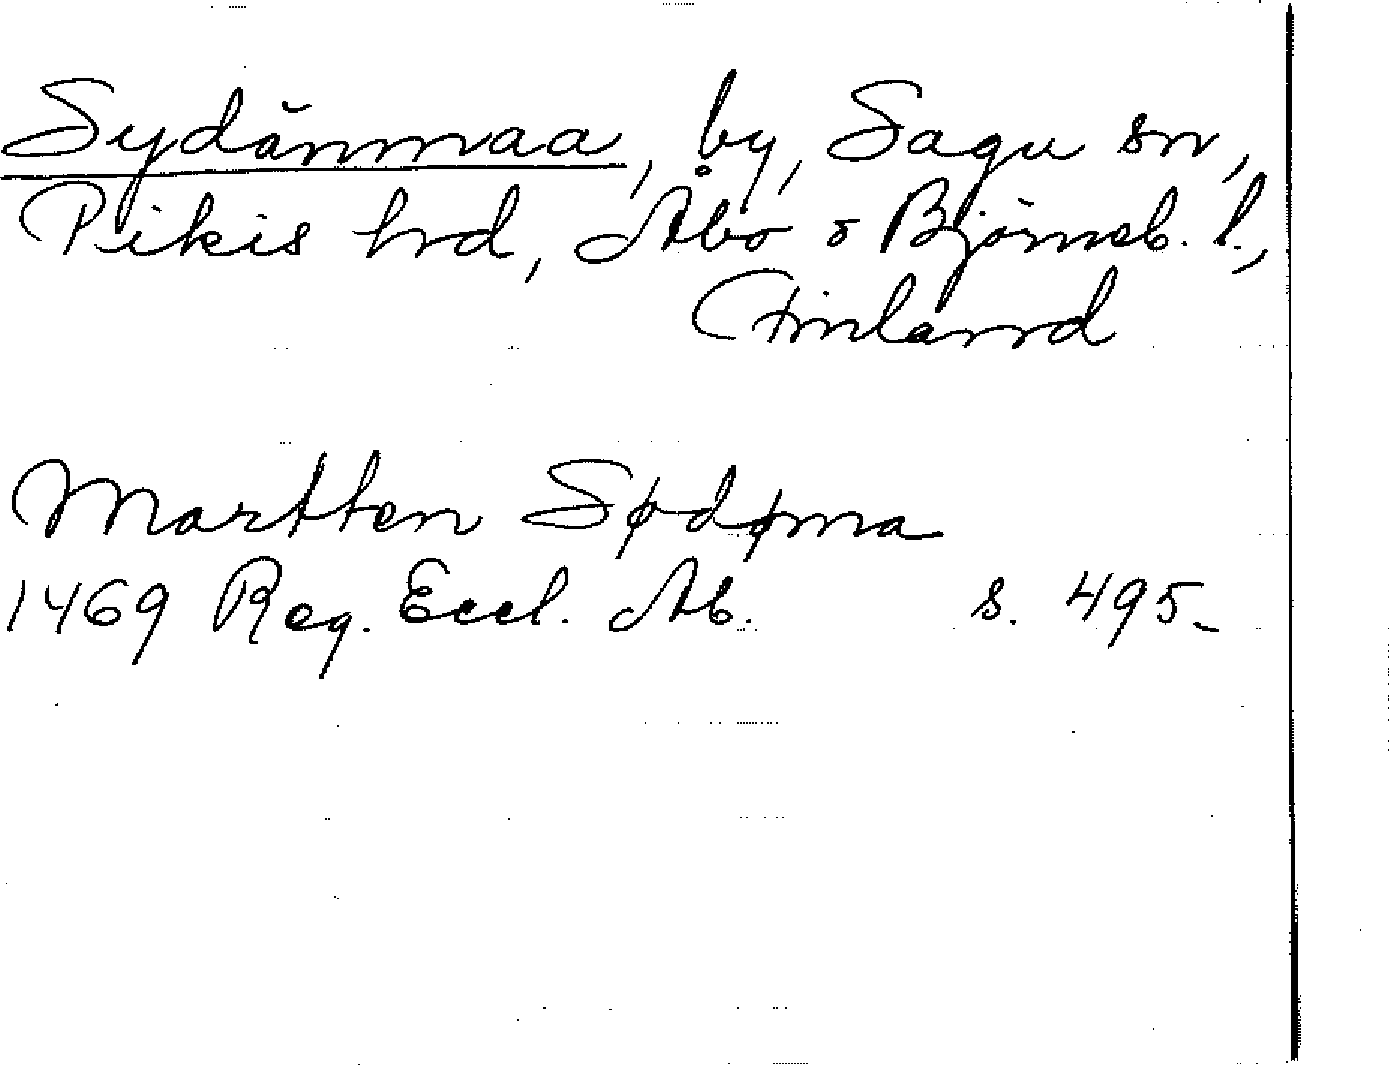 Sydänmaa, by, Sagu sn,
Pikis hrd, Åbo o Björneb. l.,
Finland
Martten Sødøma
1469 Reg. Eccl. Ab. s. 495-